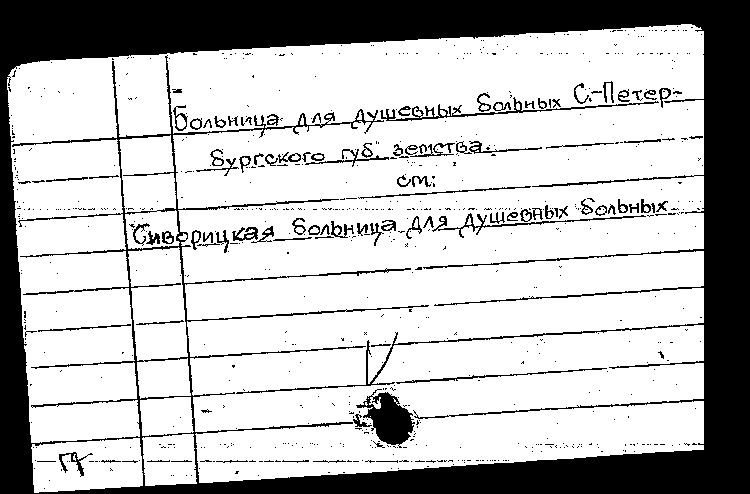 Больница для душевных больных С.-Петер-
бургского губ. земства.
см:
Сиворицкая больница для душевных больных.